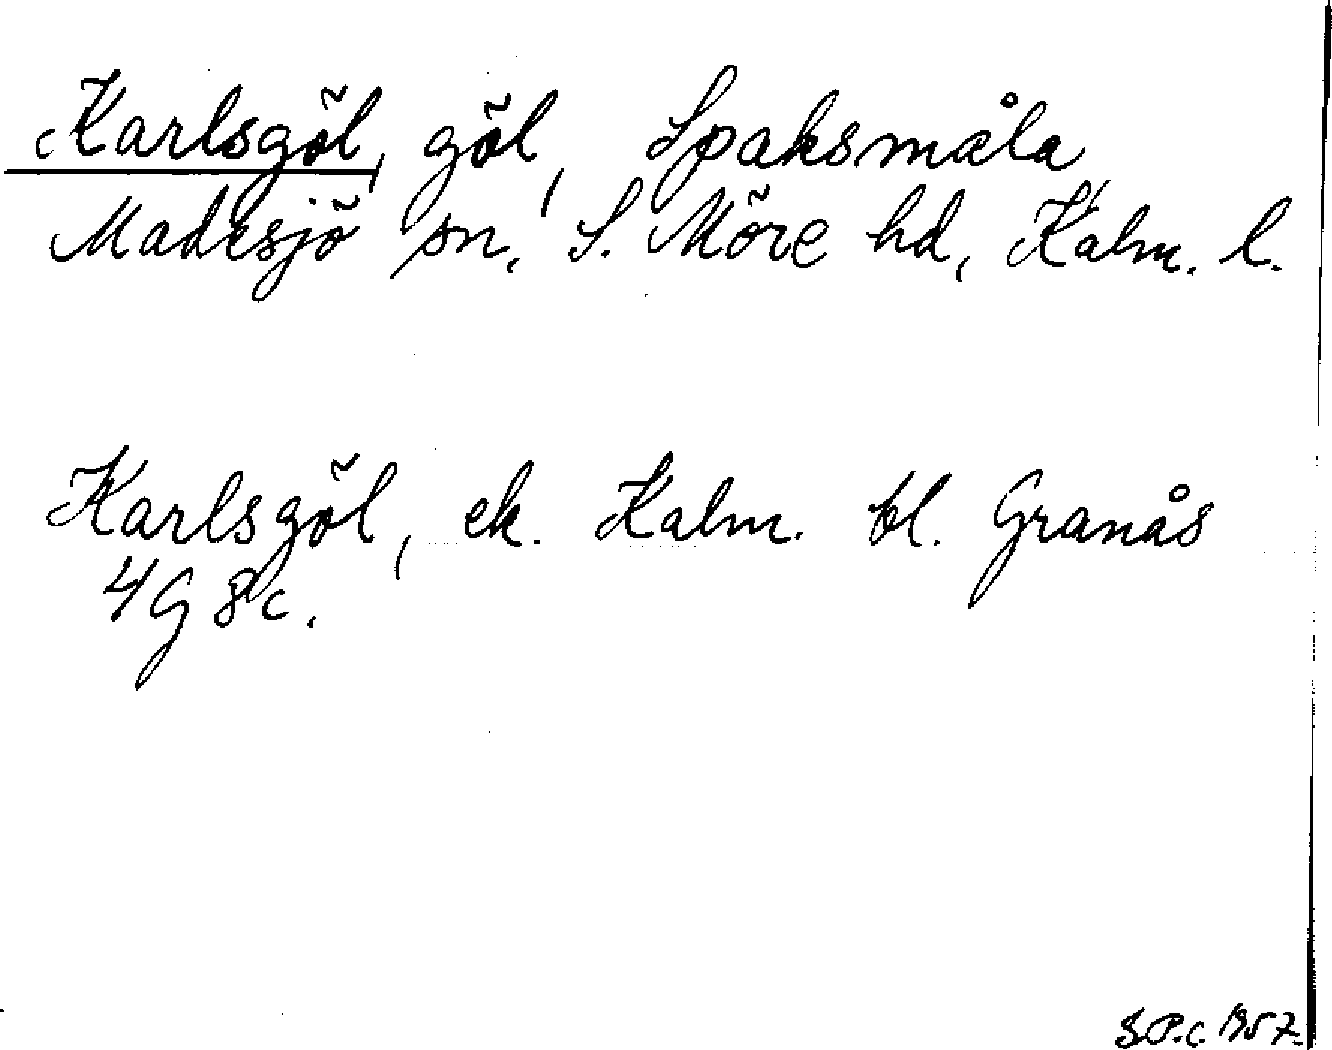 Karlsgöl, göl, Spaksmåla,
Madesjö sn, S. Möre hd, Kalm. l.
Karlsgöl, ek. Kalm. bl. Granås
4G 8c.
S.P.c. 1957.